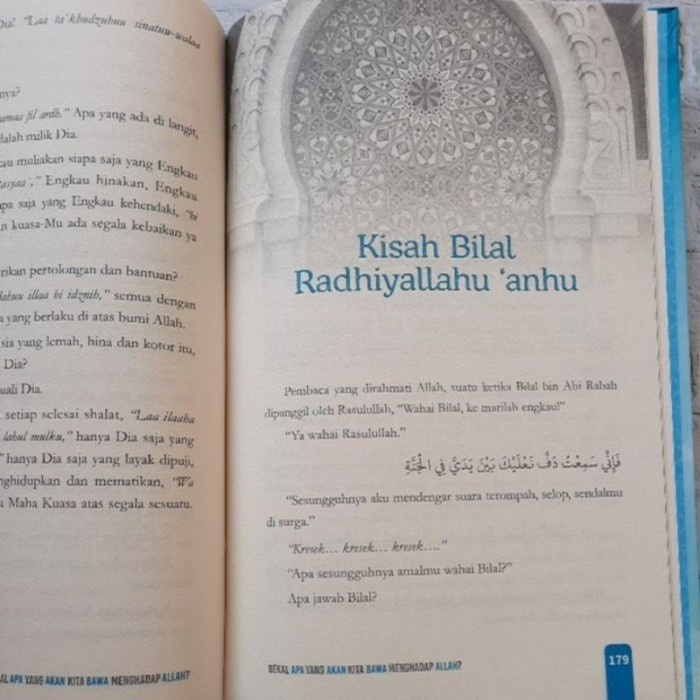 Dia! "Laa ta'khudzuhuu sinatuw-walaa
nya?
fil ardh," Apa yang ada di langit,
dalah milik Dia.
kau muliakan siapa saja yang Engkau
Engkau hinakan, Engkau
apa saja yang Engkau kehendaki, "bi
n kuasa-Mu ada segala kebaikan ya
rikan pertolongan dan bantuan?
illaa bi idznih," semua dengan
a yang berlaku di atas bumi Allah.
sia yang lemah, hina dan kotor itu,
Dia?
uali Dia.
setiap selesai shalat, "Laa ilaaha
lahul mulku," hanya Dia saja yang
hanya Dia saja yang layak dipuji,
nghidupkan dan mematikan, "Wa
a Maha Kuasa atas segala sesuatu.
AL APA YANG AKAN KITA BAWA MENGHADAP ALLAH?
Kisah Bilal
Radhiyallahu 'anhu
Pembaca yang dirahmati Allah, suatu ketika Bilal bin Abi Rabah
dipanggil oleh Rasulullah, "Wahai Bilal, ke marilah engkau!"
"Ya wahai Rasulullah."
فَإِنِّي سَمِعْتُ دَفَّ نَعْلَيْكَ بَيْنَ يَدَيَّ فِي الْجَنَّةِ
"Sesungguhnya aku mendengar suara terompah, selop, sendalmu
di surga."
"Kresek… kresek… kresek…."
"Apa sesungguhnya amalmu wahai Bilal?"
Apa jawab Bilal?
BEKAL APA YANG AKAN KITA BAWA MENGHADAP ALLAH?
179